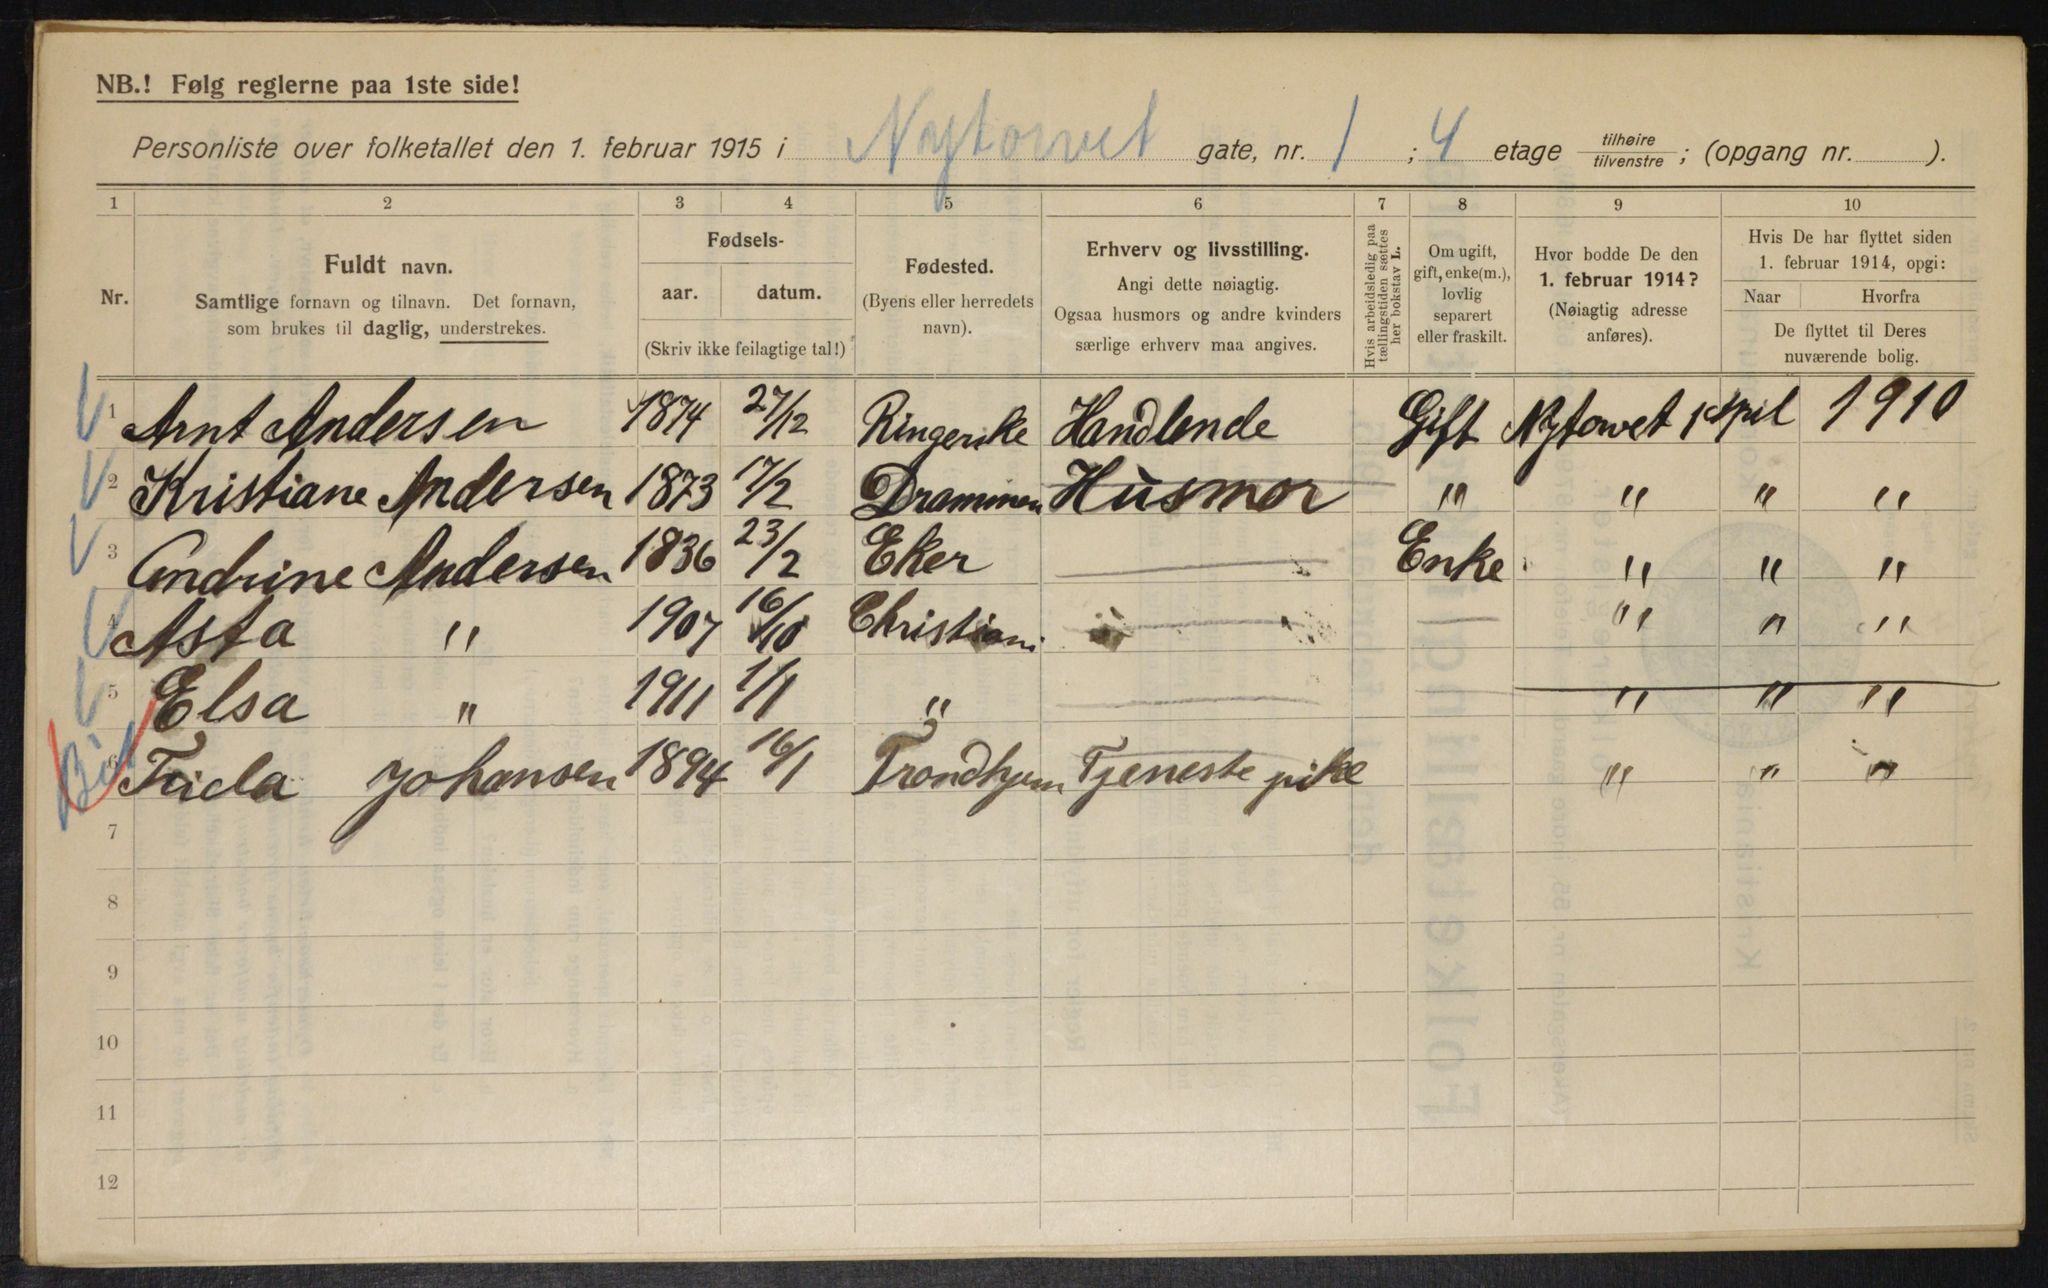 NB.! Følg reglerne paa 1ste side!
Personliste over folketallet den 1. februar 1915 i Nytorvet gate, nr. 1 ; 4 etage tilhøire / tilvenstre ; (opgang nr. ).
1 2 3 4 5 6 7 8 9 10
Nr.
Fuldt navn.
Samtlige fornavn og tilnavn. Det fornavn,
som brukes til daglig, understrekes.
Fødsels-
aar. datum.
(Skriv ikke feilagtige tal!)
Fødested.
(Byens eller herredets
navn).
Erhverv og livsstilling.
Angi dette nøiagtig.
Ogsaa husmors og andre kvinders
særlige erhverv maa angives.
Hvis arbeidsledig paa
tællingstiden sættes
her bokstav L.
Om ugift,
gift, enke(m.),
lovlig
separert
eller fraskilt.
Hvor bodde De den
1. februar 1914?
(Nøiagtig adresse
anføres).
Hvis De har flyttet siden
1. februar 1914, opgi:
Naar Hvorfra
De flyttet til Deres
nuværende bolig.
1 Arnt Andersen 1874 27/12 Ringerike Handlende Gift Nytorvet 1 April 1910
2 Kristiane Andersen 1873 17/2 Drammen Husmor " " " "
3 Andrine Andersen 1836 23/2 Eker Enke " " "
4 Asta " 1907 16/10 Christiani " " "
5 Elsa " 1911 1/1 " " " "
6 Frida Johansen 1894 16/1 Trondhjem Tjeneste pike " " "
7
8
9
10
11
12